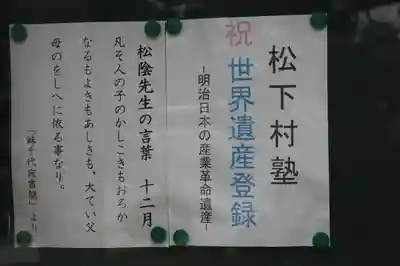 松下村塾
祝 世界遺産登録
-明治日本の産業革命遺産-
松陰先生の言葉 十二月
凡そ人の子のかしこきもおろか
なるもよきもあしきも、大てい父
母のをしへに依る事なり。
「妹千代宛書簡」より